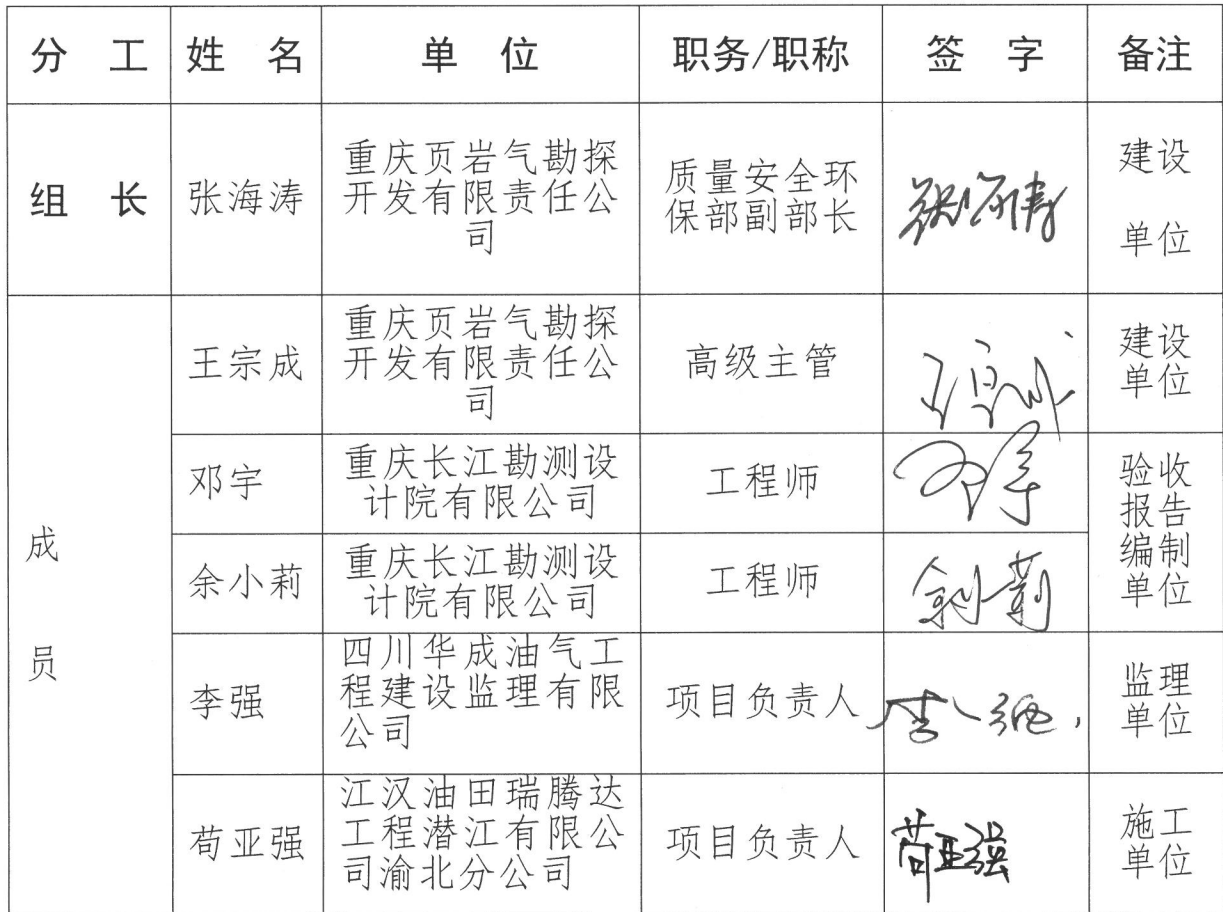 分 工 姓 名 单 位 职务/职称 签 字 备注
组 长 张海涛 重庆页岩气勘探
开发有限责任公
司 质量安全环
保部副部长 张海涛 建设
单位
成
员
王宗成 重庆页岩气勘探
开发有限责任公
司 高级主管 建设
单位
邓宇 重庆长江勘测设
计院有限公司 工程师 邓宇 验收
报告
编制
单位
余小莉 重庆长江勘测设
计院有限公司 工程师 余小莉
李强 四川华成油气工
程建设监理有限
公司 项目负责人 李强 监理
单位
苟亚强 江汉油田瑞腾达
工程潜江有限公
司渝北分公司 项目负责人 苟亚强 施工
单位